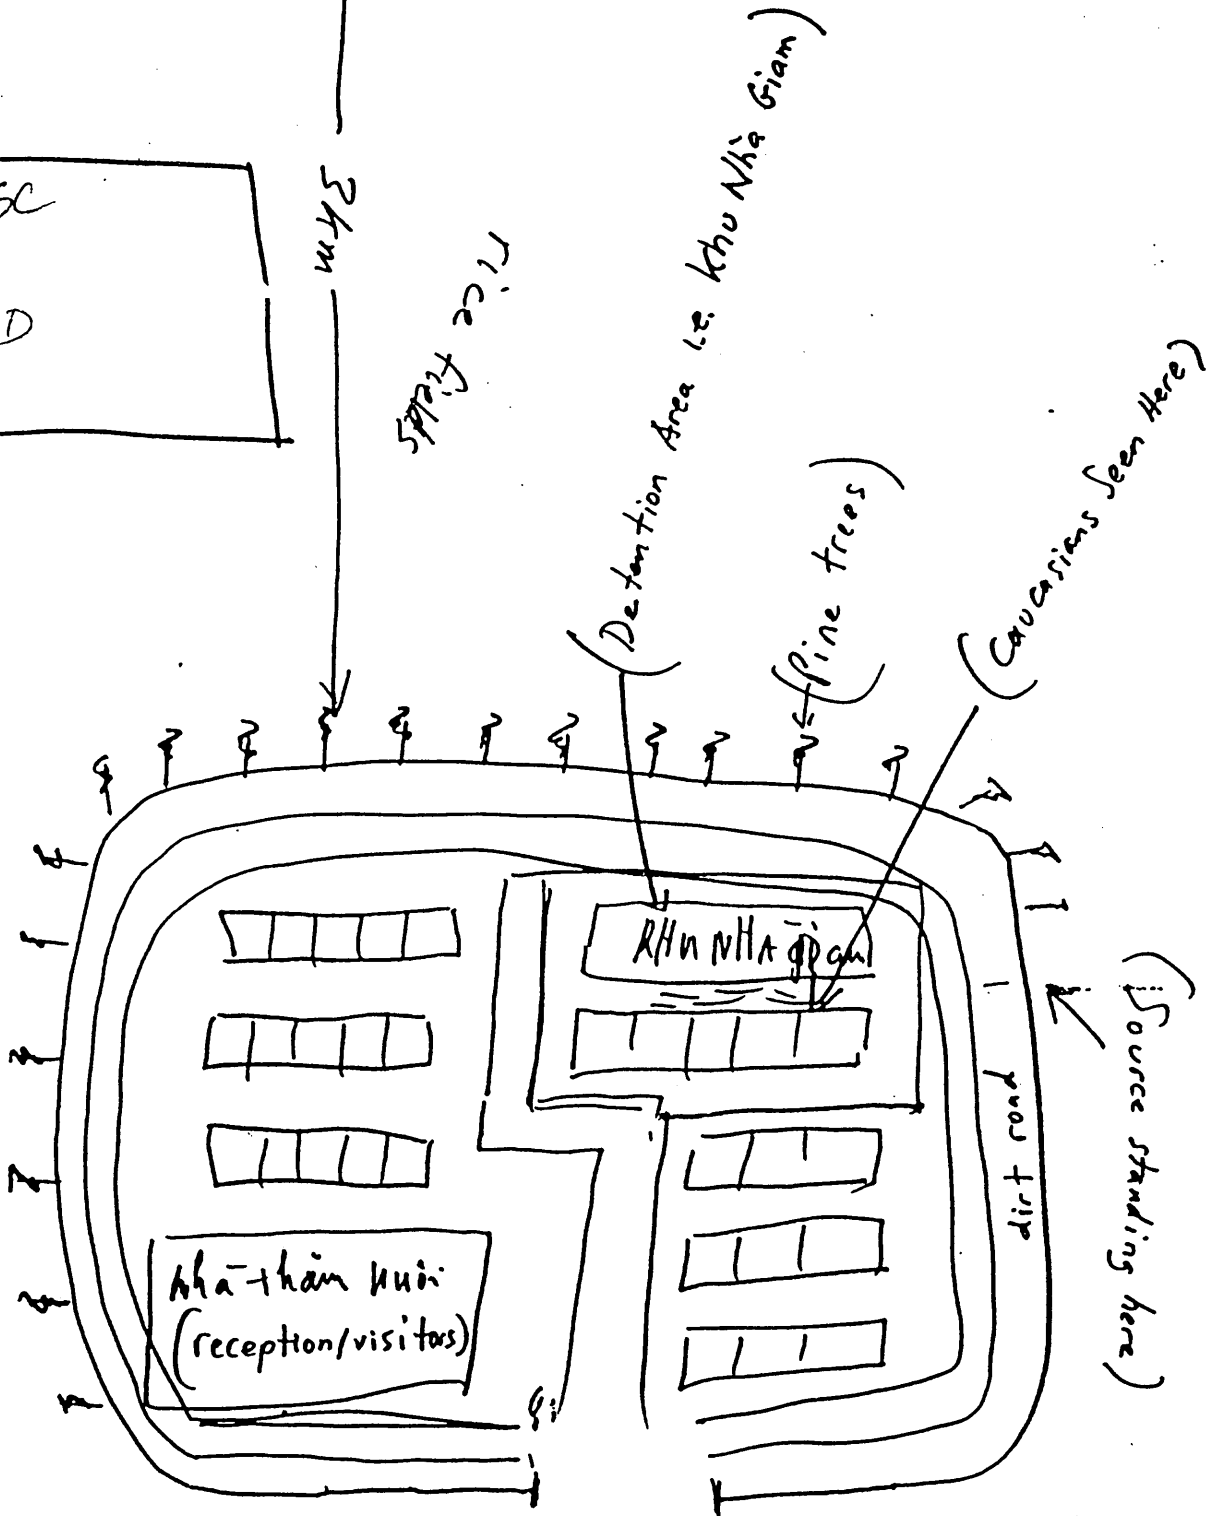 SC
D
3km
rice fields
(Detention Area i.e. Khu Nhà Giam)
(Pine trees)
(Caucasians Seen Here)
KHU NHA
(Source standing here)
dirt road
nhà thăm nuôi
(reception/visitors)